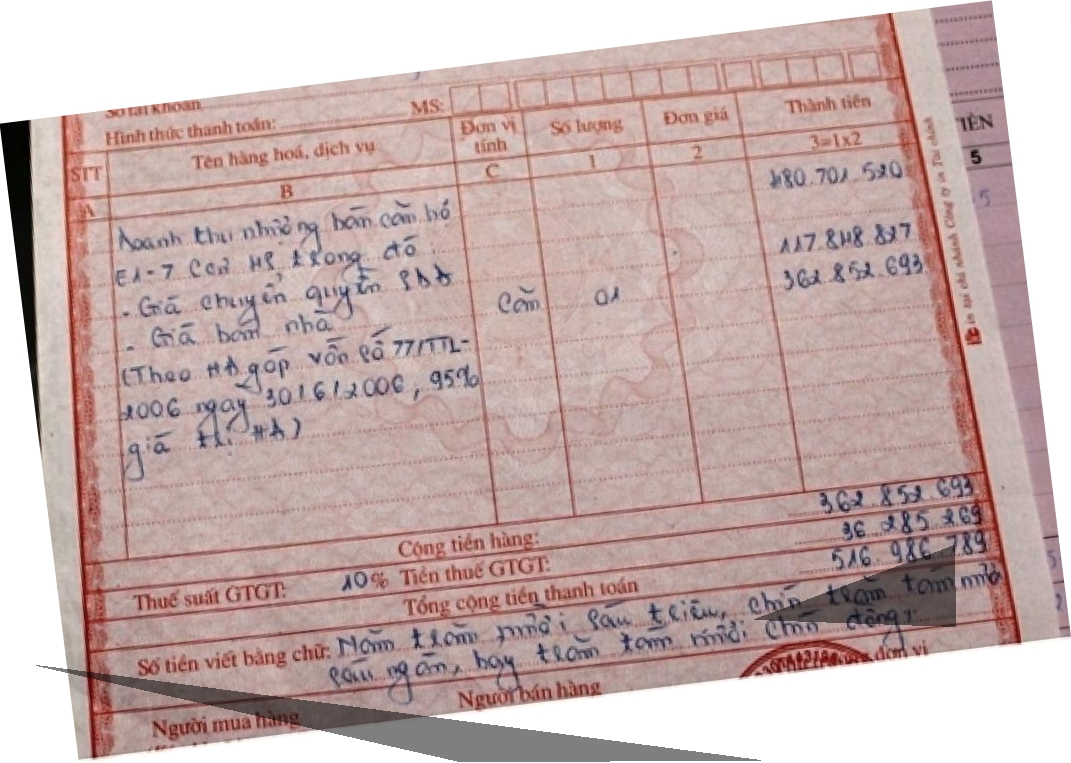 Số tài khoản
Hình thức thanh toán: MS:
STT Tên hàng hoá, dịch vụ Đơn vị tính Số lượng Đơn giá Thành tiền
A B C 1 2 3=1x2
Doanh thu nhượng bán căn hộ 480.701.520
E1-7 CC2 trong đó:
- Giá chuyển quyền SDĐ 117.848.827
- Giá bán nhà Căn 01 362.852.693
(Theo HĐ góp vốn số 77/TTL-
2006 ngày 30/6/2006, 95%
giá trị HĐ)
Cộng tiền hàng: 362.852.693
Thuế suất GTGT: 10% Tiền thuế GTGT: 36.285.269
Tổng cộng tiền thanh toán 516.986.789
Số tiền viết bằng chữ: Năm trăm mười sáu triệu, chín trăm tám mươi
sáu ngàn, bảy trăm tám mươi chín đồng
Người mua hàng Người bán hàng đơn vị
TIỀN
5
5